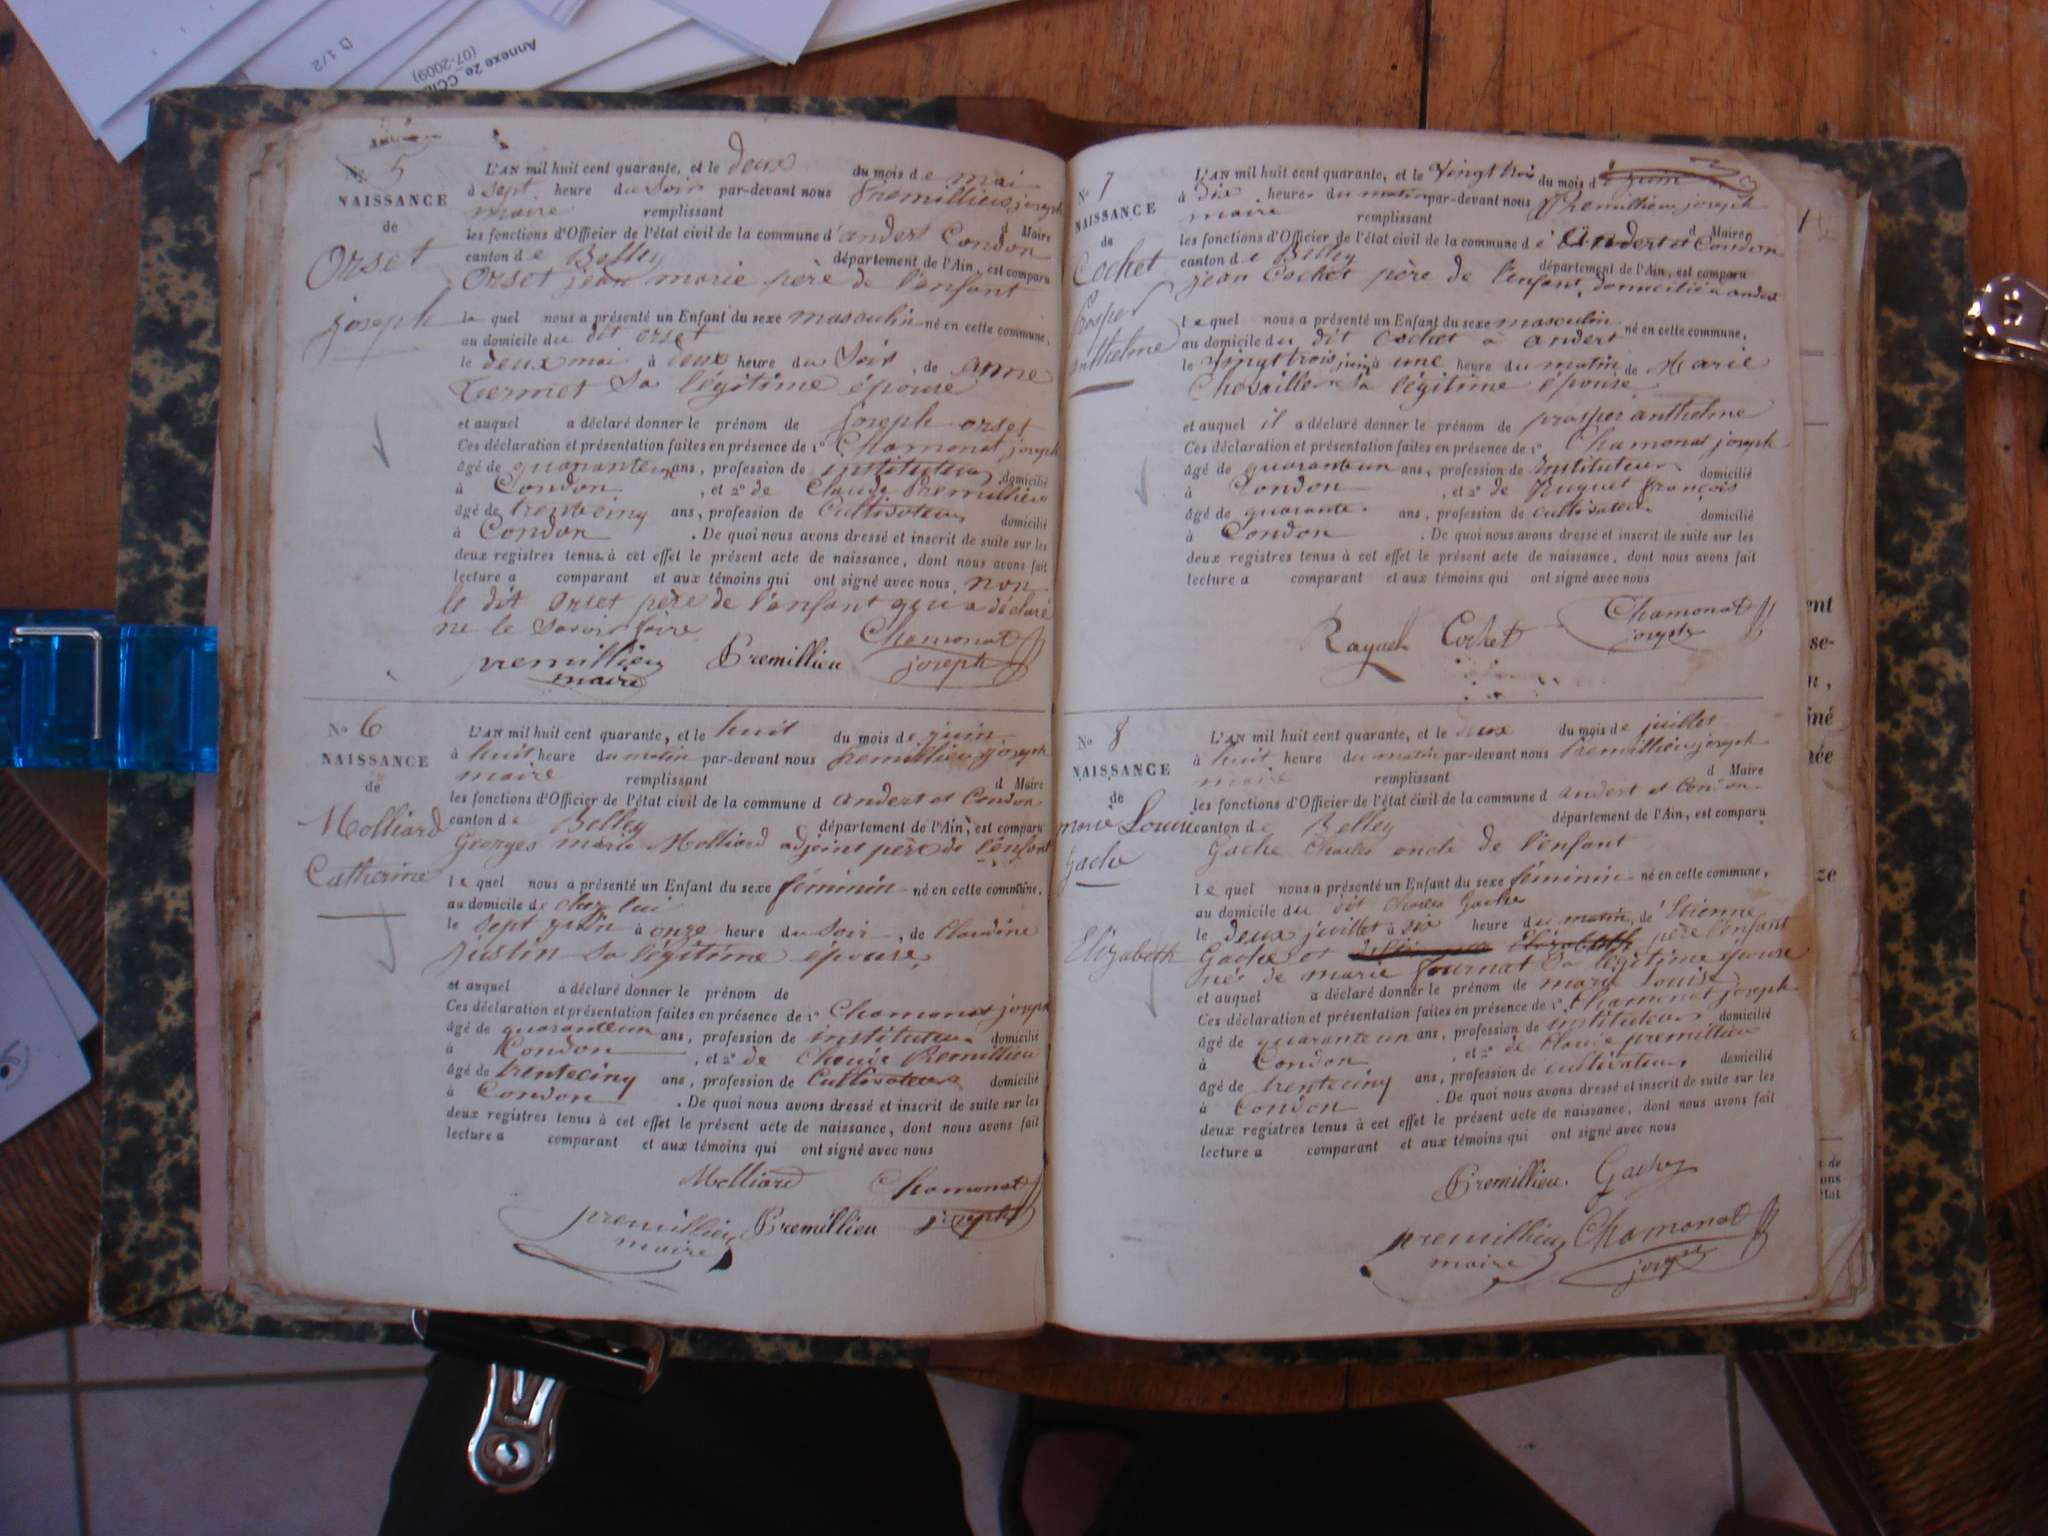 Annexe 2e
(07-2009)
1/2
N° 5
NAISSANCE
de
Orset
joseph
L'AN mil huit cent quarante, et le deux du mois de mai
à sept heure du soir par-devant nous Premillieu joseph
maire remplissant d Maire
les fonctions d'Officier de l'état civil de la commune d'andert Condon
canton de Belley département de l'Ain, est comparu
Orset jean marie père de l'enfant
le quel nous a présenté un Enfant du sexe masculin né en cette commune,
au domicile du dit orset
le deux mai à deux heure du soir, de anne
Termet sa légitime épouse
et auquel a déclaré donner le prénom de joseph orset
Ces déclaration et présentation faites en présence de 1° Chamonat joseph
âgé de quaranteun ans, profession de instituteur domicilié
à Condon, et 2° de Claude Premillieu
âgé de trentecinq ans, profession de Cultivateur domicilié
à Condon. De quoi nous avons dressé et inscrit de suite sur les
deux registres tenus à cet effet le présent acte de naissance, dont nous avons fait
lecture a comparant et aux témoins qui ont signé avec nous, non
le dit Orset père de l'enfant qui a déclaré
ne le savoir faire
Chamonat
joseph
premillieu
maire
Premillieu
N° 6
NAISSANCE
de
Molliard
Catherine
L'AN mil huit cent quarante, et le huit du mois de juin
à huit heure du matin par-devant nous Premillieu joseph
maire remplissant d Maire
les fonctions d'Officier de l'état civil de la commune d andert et Condon
canton de Belley département de l'Ain, est comparu
Georges marie Molliard adjoint père de l'enfant
le quel nous a présenté un Enfant du sexe féminin né en cette commune,
au domicile de chez lui
le sept juin à onze heure du soir, de Claudine
justin sa légitime épouse
et auquel a déclaré donner le prénom de
Ces déclaration et présentation faites en présence de 1° Chamonat joseph
âgé de quaranteun ans, profession de instituteur domicilié
à Condon, et 2° de Claude Premillieu
âgé de trentecinq ans, profession de Cultivateur domicilié
à Condon. De quoi nous avons dressé et inscrit de suite sur les
deux registres tenus à cet effet le présent acte de naissance, dont nous avons fait
lecture a comparant et aux témoins qui ont signé avec nous
Molliard Chamonat
joseph
premillieu
maire
Premillieu
N° 7
NAISSANCE
de
Cochet
Prosper
anthelme
L'AN mil huit cent quarante, et le vingt trois du mois de juin
à dix heure du matin par-devant nous Premillieu joseph
maire remplissant d Maire
les fonctions d'Officier de l'état civil de la commune d' Andert et Condon
canton de Belley département de l'Ain, est comparu
jean Cochet père de l'enfant domicilié a andert
le quel nous a présenté un Enfant du sexe masculin né en cette commune,
au domicile du dit Cochet a andert
le vingttrois juin à une heure du matin de Marie
sa légitime épouse
et auquel il a déclaré donner le prénom de prosper anthelme
Ces déclaration et présentation faites en présence de 1° Chamonat joseph
âgé de quaranteun ans, profession de instituteur domicilié
à Condon, et 2° de françois
âgé de quarante ans, profession de cultivateur domicilié
à Condon. De quoi nous avons dressé et inscrit de suite sur les
deux registres tenus à cet effet le présent acte de naissance, dont nous avons fait
lecture a comparant et aux témoins qui ont signé avec nous
Cochet Chamonat
joseph
N° 8
NAISSANCE
de
marie Louise
Gache
Elizabeth
L'AN mil huit cent quarante, et le deux du mois de juillet
à huit heure du matin par-devant nous Premillieu joseph
maire remplissant d Maire
les fonctions d'Officier de l'état civil de la commune d andert et Condon
canton de Belley département de l'Ain, est comparu
Gache Charles oncle de l'enfant
le quel nous a présenté un Enfant du sexe féminin né en cette commune,
au domicile du dit Charles Gache
le deux juillet à six heure du matin, de Etienne
Gache père l'enfant
né de marie fournat sa légitime épouse
et auquel a déclaré donner le prénom de marie Louise
Ces déclaration et présentation faites en présence de 1° Chamonat joseph
âgé de quaranteun ans, profession de instituteur domicilié
à Condon, et 2° de Claude premillieu
âgé de trentecinq ans, profession de cultivateur domicilié
à Condon. De quoi nous avons dressé et inscrit de suite sur les
deux registres tenus à cet effet le présent acte de naissance, dont nous avons fait
lecture a comparant et aux témoins qui ont signé avec nous
Premillieu Gache
premillieu Chamonat
maire